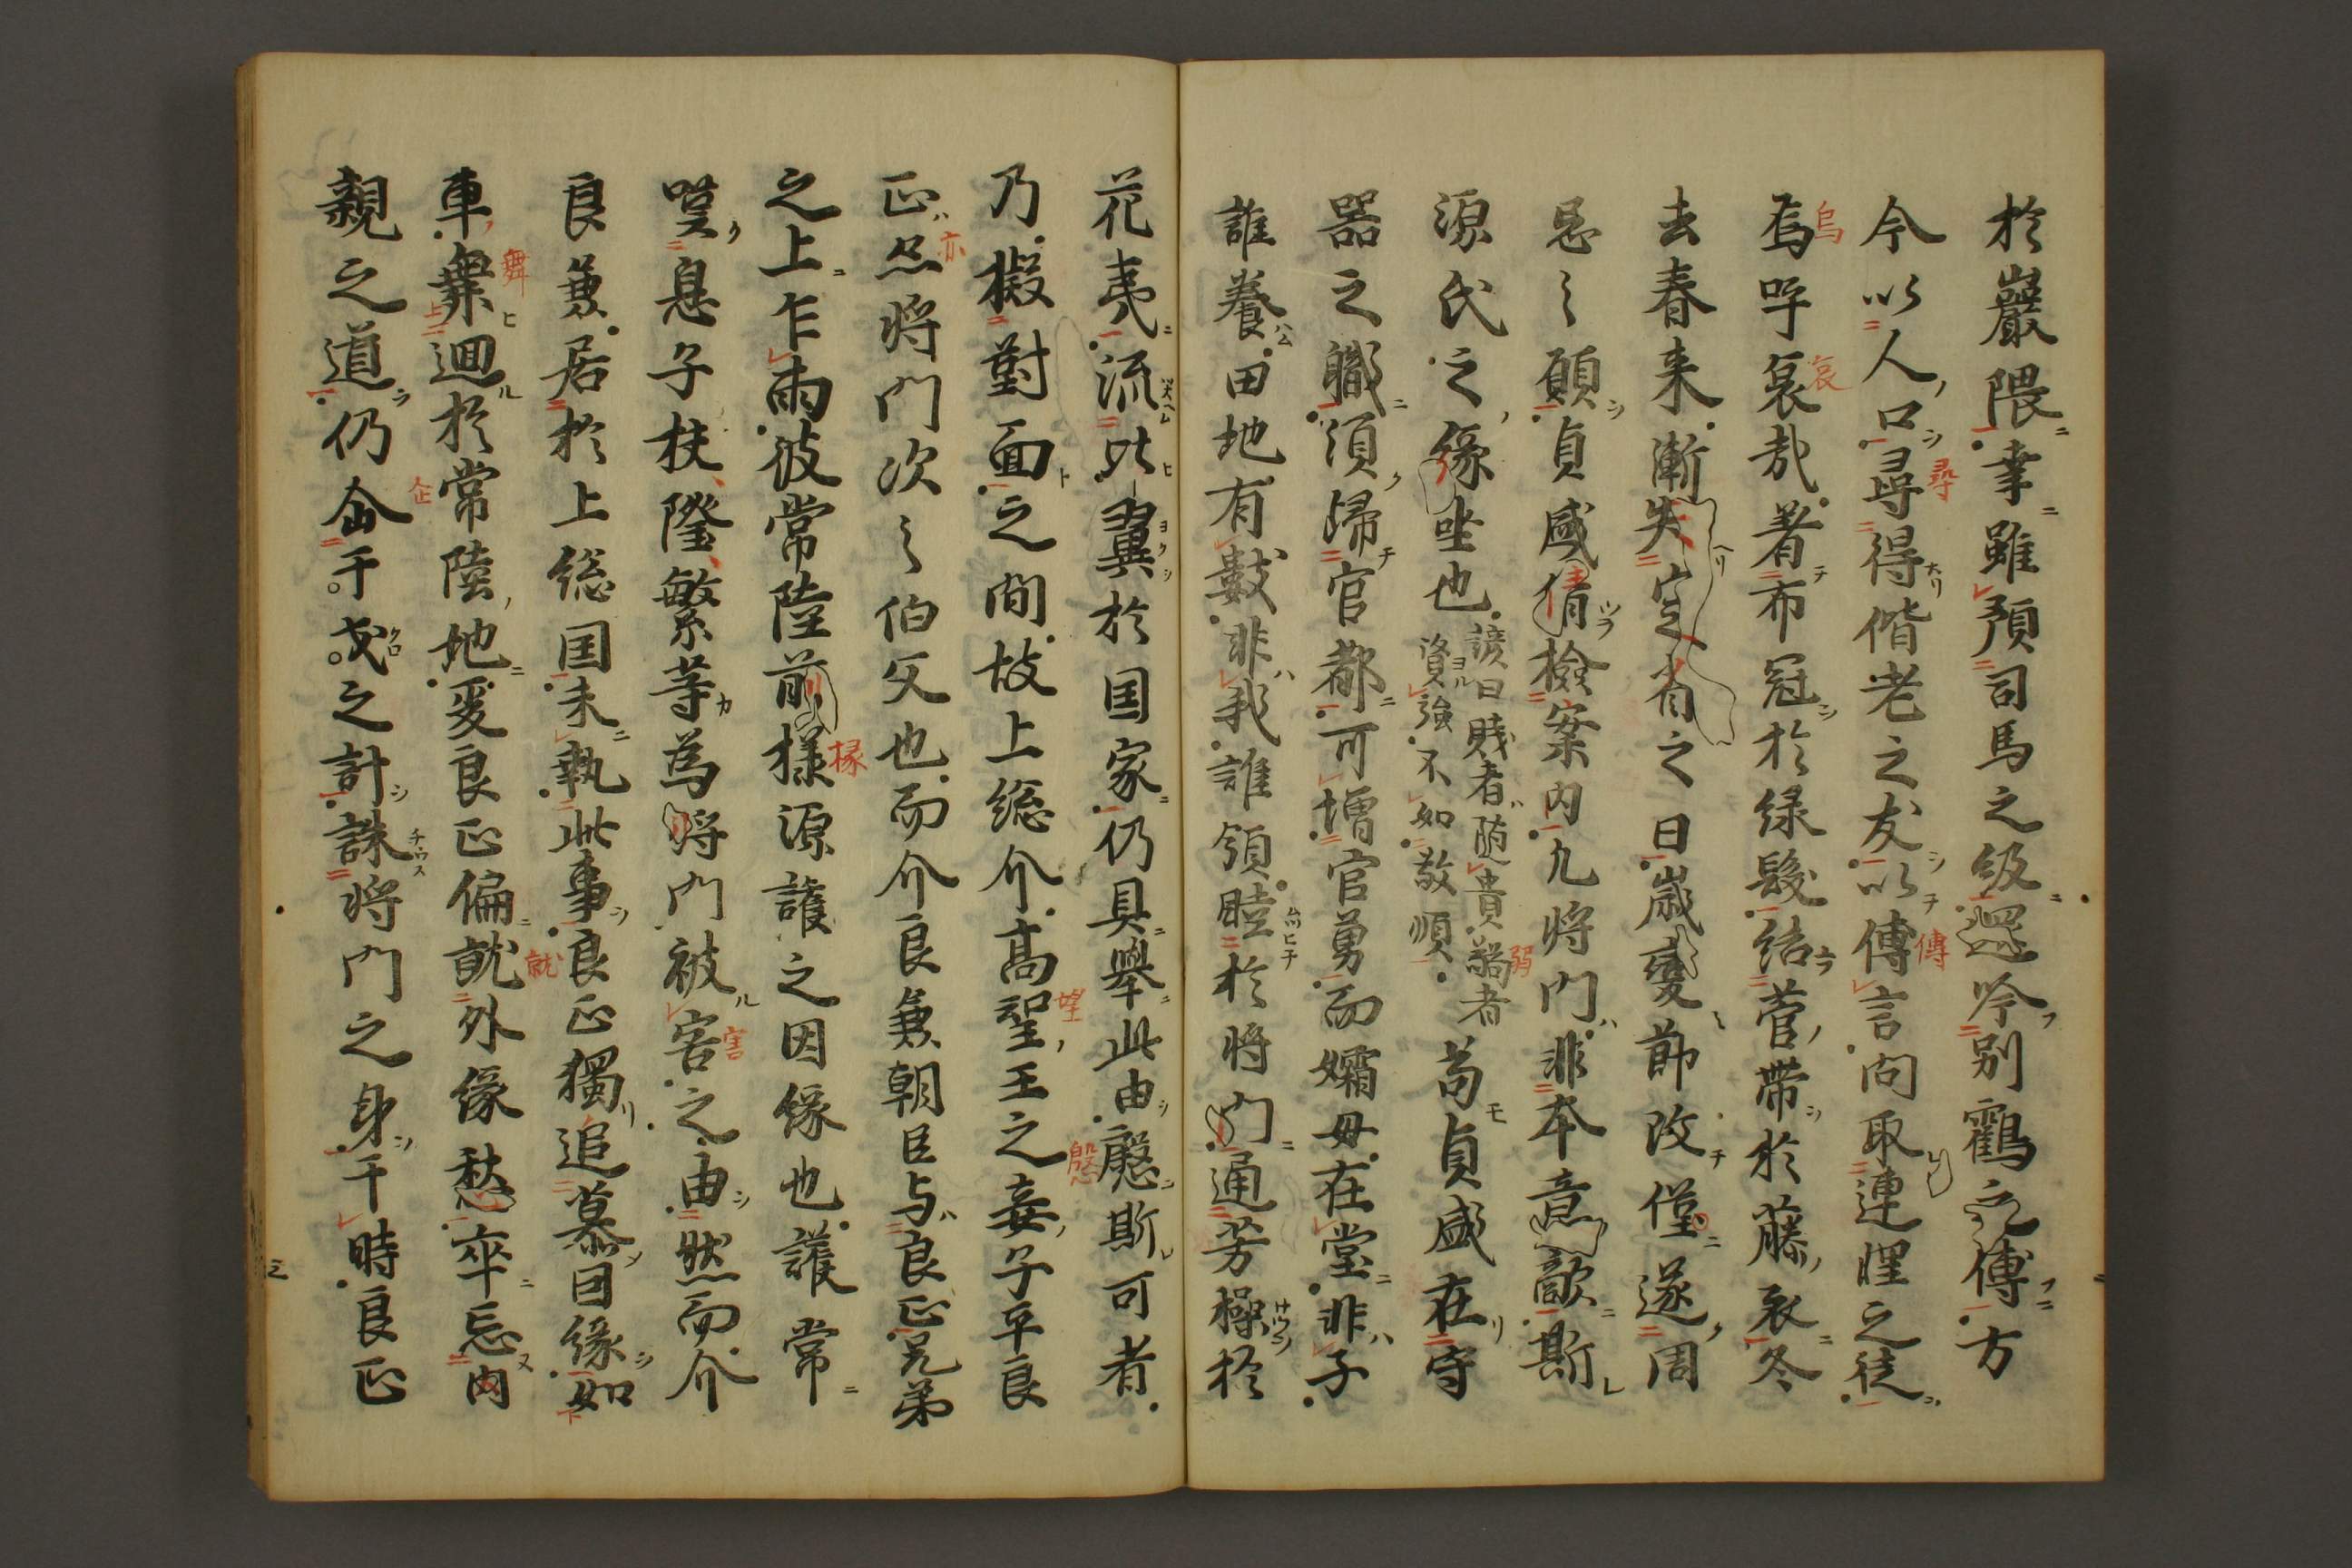 於巖隈幸雖預司馬之級還吟別鶴之傳方
今以人口尋得偕老之友以傳言問取連理之徒
烏呼哀哉着布冠於緑髮結菅帶於藤衣冬
去春来漸失定省之日歳變節改僅遂周
忌之願貞盛倩檢案内凡將門非本意敵斯
源氏之縁坐也諺曰賎者随貴弱者資強不如敬順苟貞盛在守
器之職須歸官都可増官勇而孀母在堂非子
誰養田地有數非我誰領睦於將門通芳操於
花夷流比翼於国家仍具擧此由慇斯可者
乃擬對面之間故上総介高望王之妾子平良
正亦將門次之伯父也而介良兼朝臣与良正兄弟
之上乍両彼常陸前掾源護之因縁也護常
嘆息子扶隆繁等為將門被害之由然而介
良兼居於上総国未執此事良正獨追慕因縁如
車舞廻於常陸地爰良正偏就外縁愁卒忘内
親之道仍企干戈之計誅將門之身于時良正